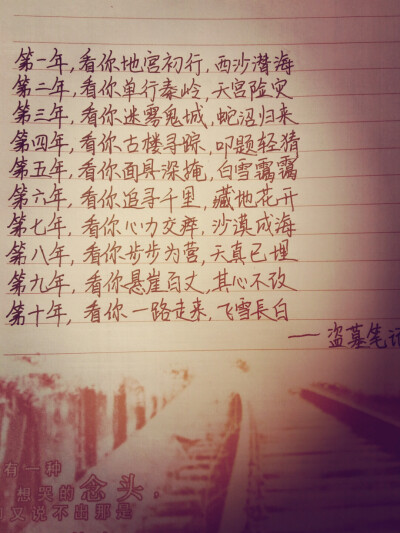 第一年,看你地宫初行,西沙潜海
第二年,看你单行秦岭,天宫险灾
第三年,看你迷雾鬼城,蛇沼归来
第四年,看你古楼寻踪,叩题轻猜
第五年,看你面具深掩,白雪霭霭
第六年,看你追寻千里,藏地花开
第七年,看你心力交瘁,沙漠成海
第八年,看你步步为营,天真已埋
第九年,看你悬崖百丈,其心不改
第十年,看你一路走来,飞雪長白
——盗墓笔记
有一种
想哭的念头,
又说不出那是